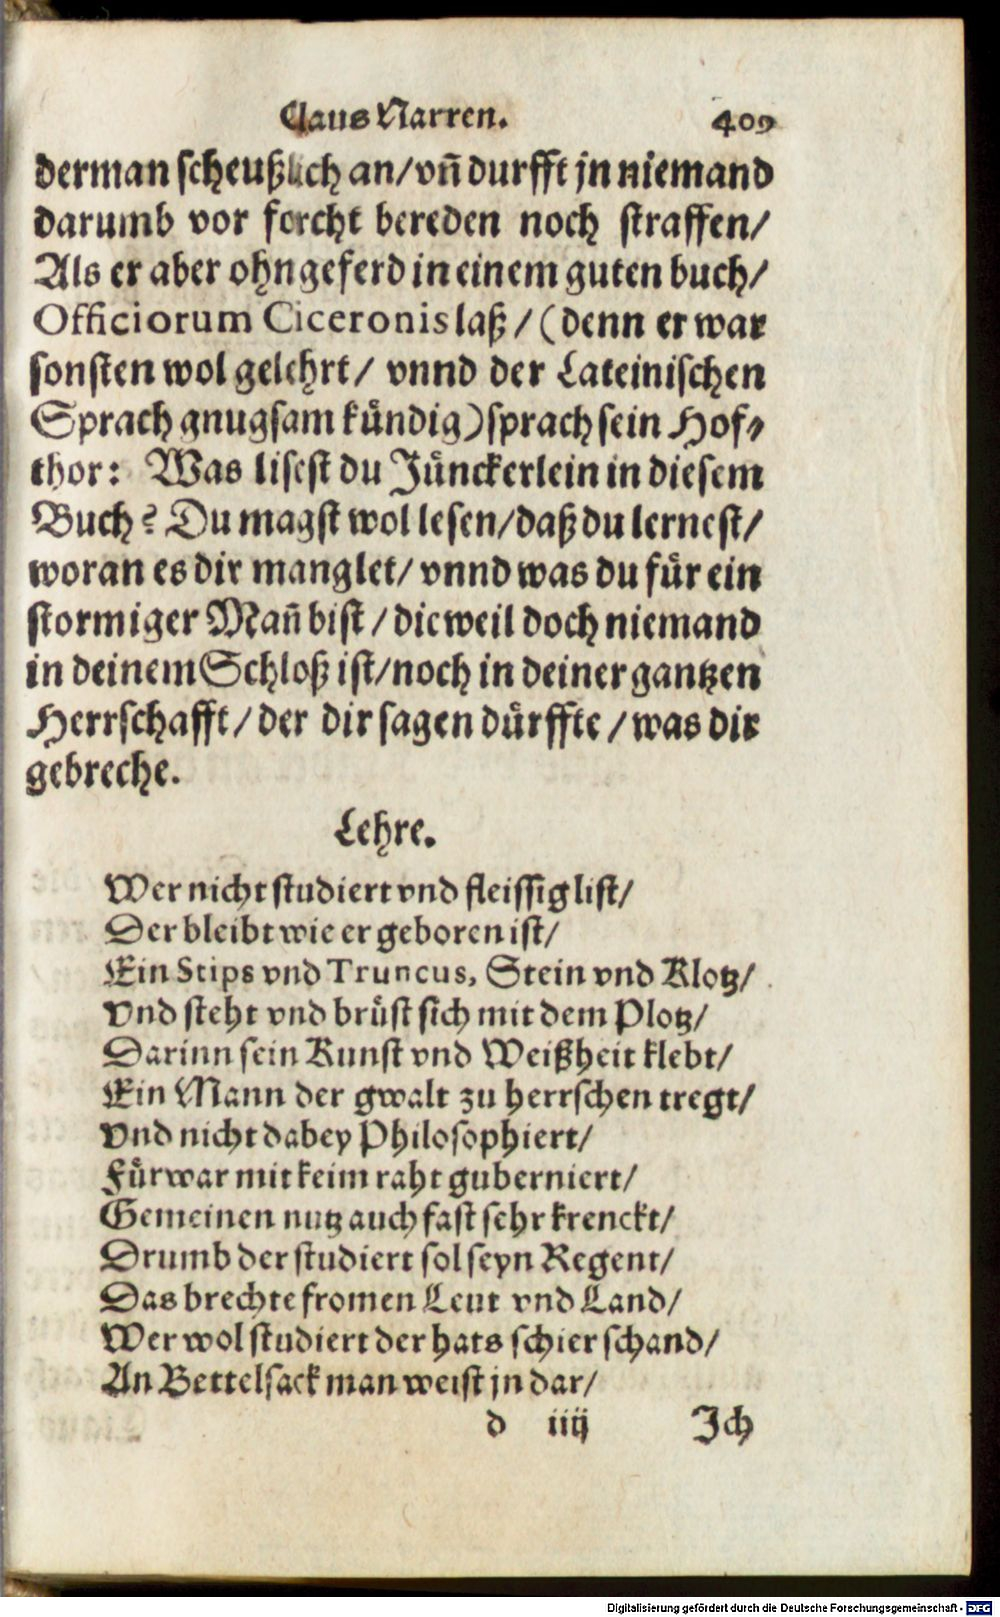 Claus Narren. 409
derman scheußlich an/vñ durfft jn niemand
darumb vor forcht bereden noch straffen/
Als er aber ohngeferd in einem guten buch/
Officiorum Ciceronis laß/(denn er war
sonsten wol gelehrt/ vnnd der Lateinischen
Sprach gnugsam kündig) sprach sein Hof-
thor: Was lisest du Jünckerlein in diesem
Buch? Du magst wol lesen/daß du lernest/
woran es dir manglet/ vnnd was du für ein
stormiger Mañ bist/dieweil doch niemand
in deinem Schloß ist/noch in deiner gantzen
Herrschafft/ der dir sagen dürffte/was dir
gebreche.
Lehre.
Wer nicht studiert vnd fleissig list/
Der bleibt wie er geboren ist/
Ein Stips vnd Truncus, Stein vnd Klotz/
Vnd steht vnd brüst sich mit dem Plotz/
Darinn sein Kunst vnd Weißheit klebt/
Ein Mann der gwalt zu herrschen tregt/
Vnd nicht dabey Philosophiert/
Fürwar mit keim raht guberniert/
Gemeinen nutz auch fast sehr krenckt/
Drumb der studiert sol seyn Regent/
Das brechte fromen Leut vnd Land/
Wer wol studiert der hats schier schand/
An Bettelsack man weist jn dar/
d iiij Jch
Digitalisierung gefördert durch die Deutsche Forschungsgemeinschaft - DFG